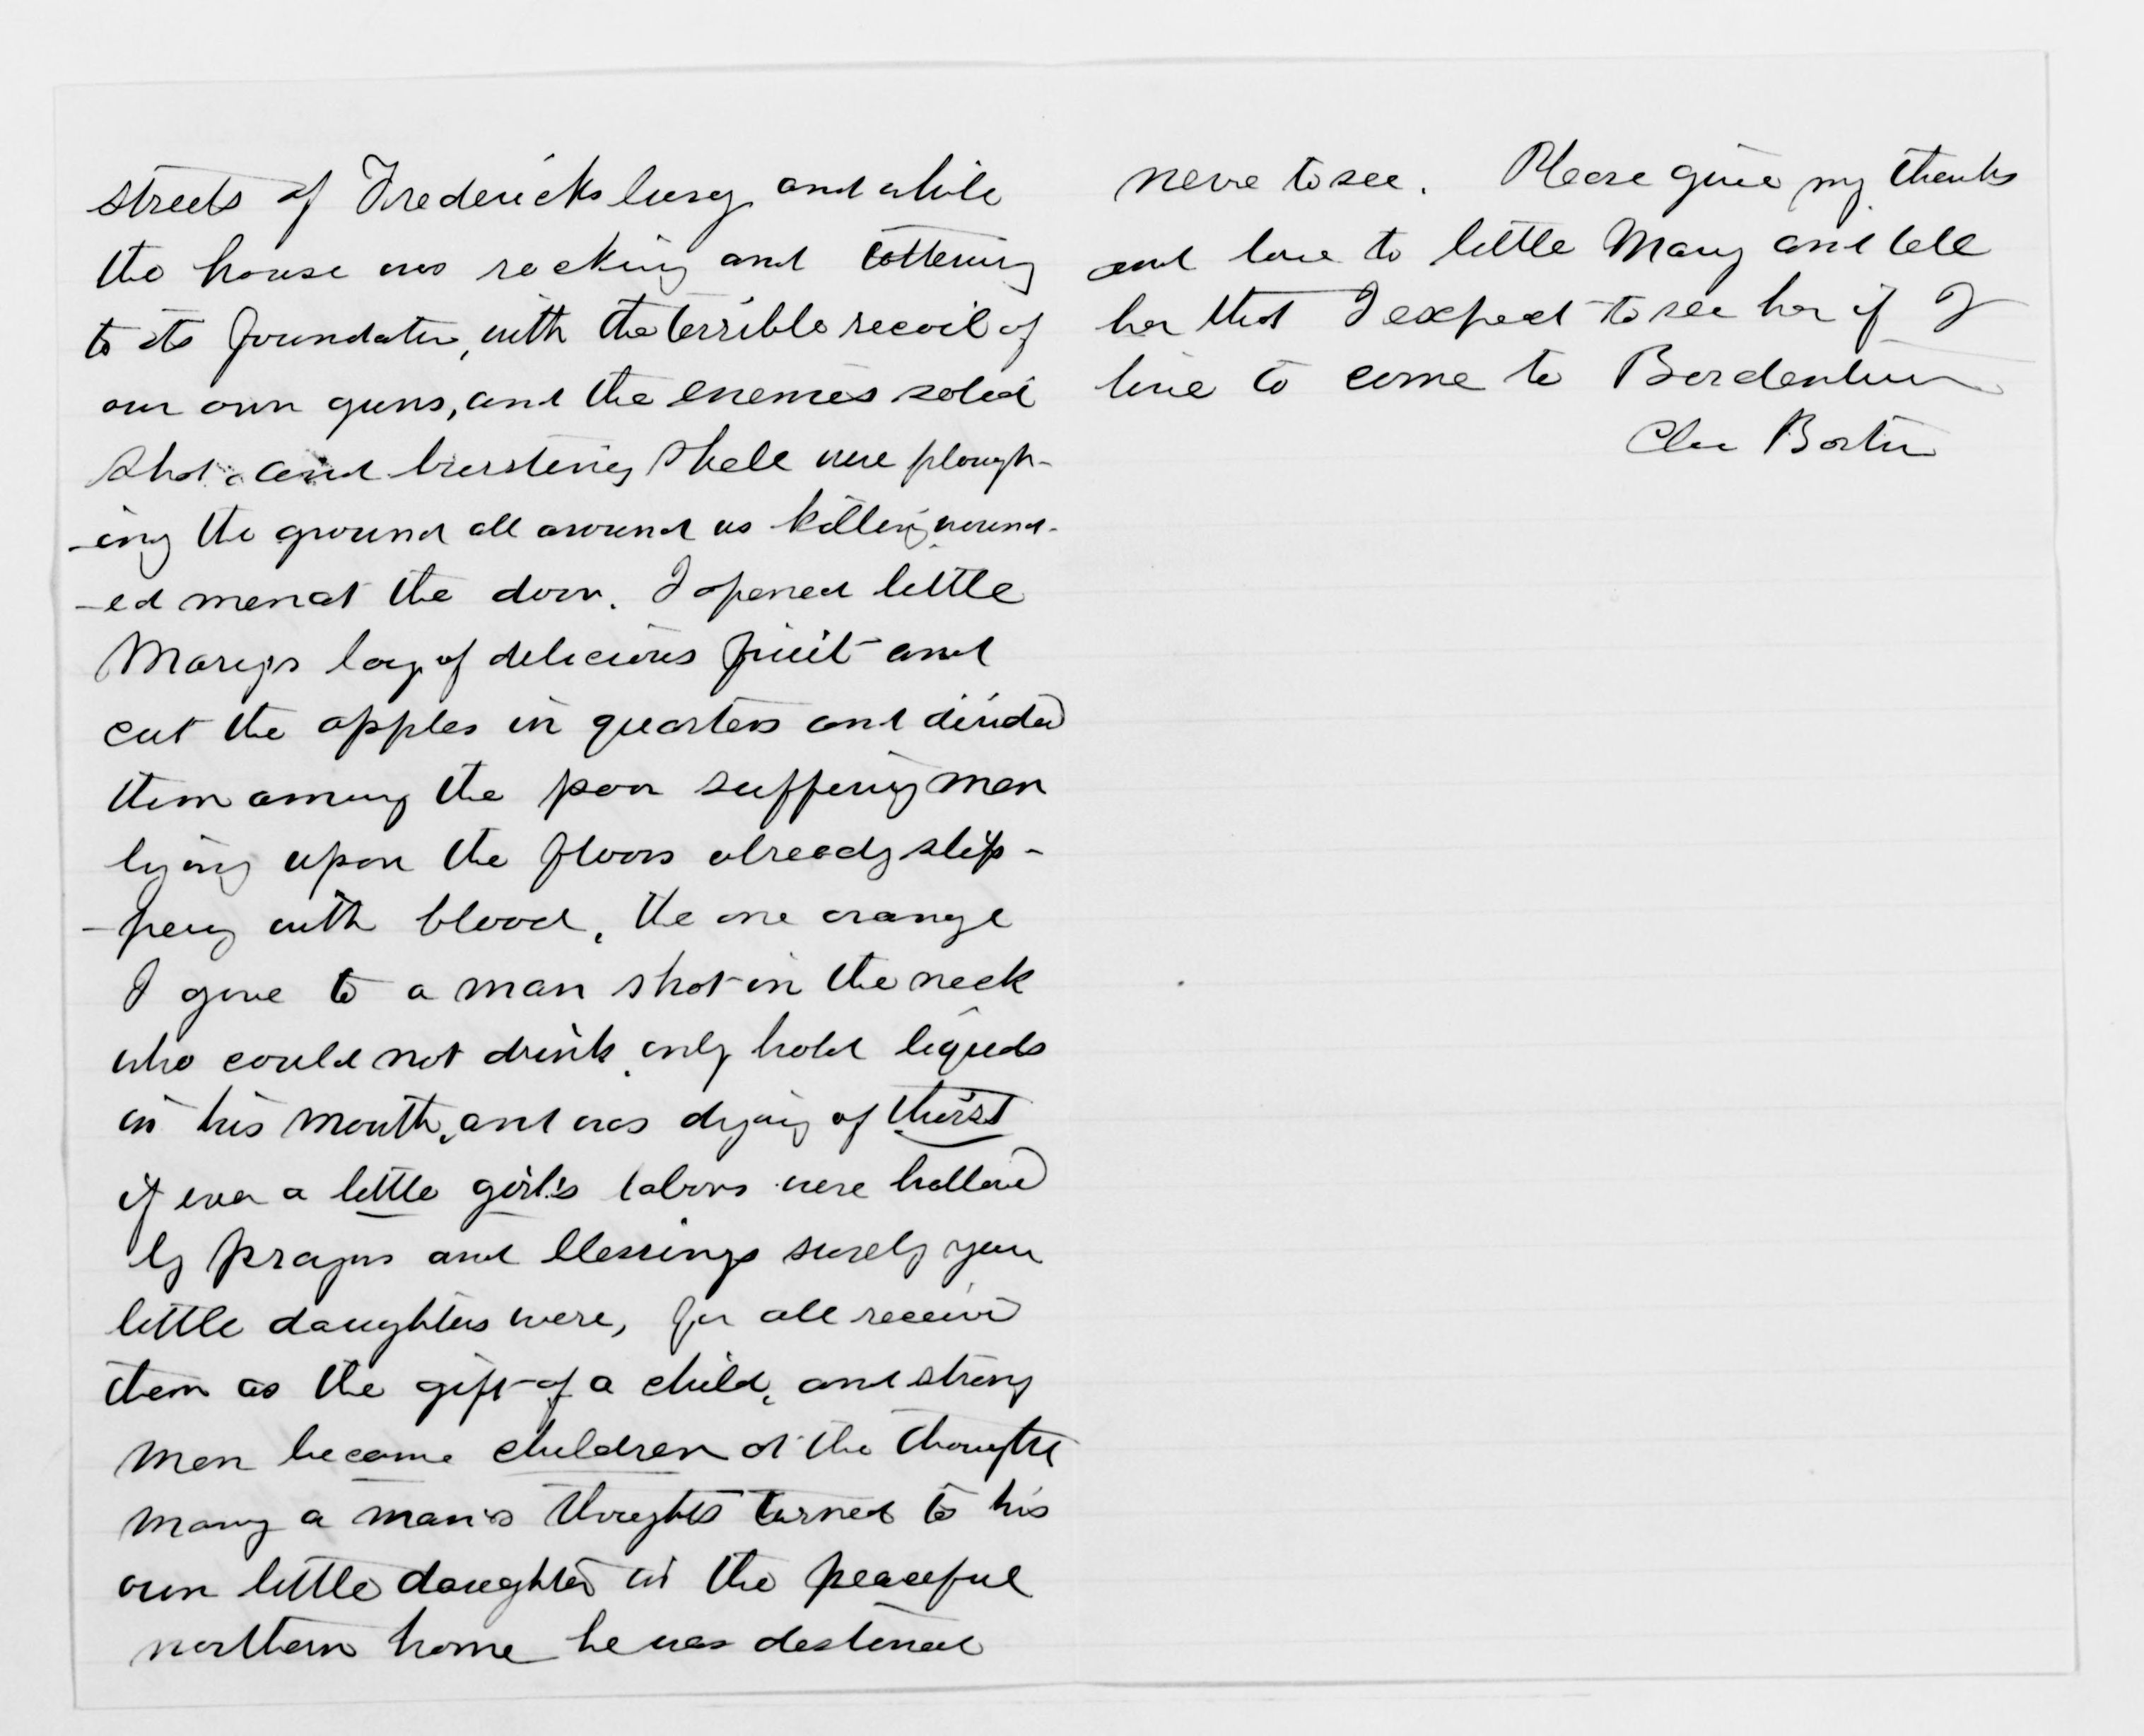 streets of Fredericksburg and while
the house was rocking and tottering
to its foundation, with the terrible recoil of
our own guns, and the enemies solid
shot and bursting shell were plough-
-ing the ground all around us killing wound-
-ed men at the door. I opened little
Mary's bag of delicious fruit and
cut the apples in quarters and divided
them among the poor suffering men
lying upon the floors already slip-
-pery with blood, the one orange
I gave to a man shot in the neck
who could not drink, only hold liquids
in his mouth, and was dying of thirst
if ever a little girl's labors were hallowed
by prayers and blessings surely your
little daughters were, for all received
them as the gift of a child, and strong
men became children at the thought
many a man's thoughts turned to his
own little daughter in the peaceful
northern home he was destined
never to see. Please give my thanks
and love to little Mary and tell
her that I expect to see her if I
live to come to Bordentown
Clara Barton